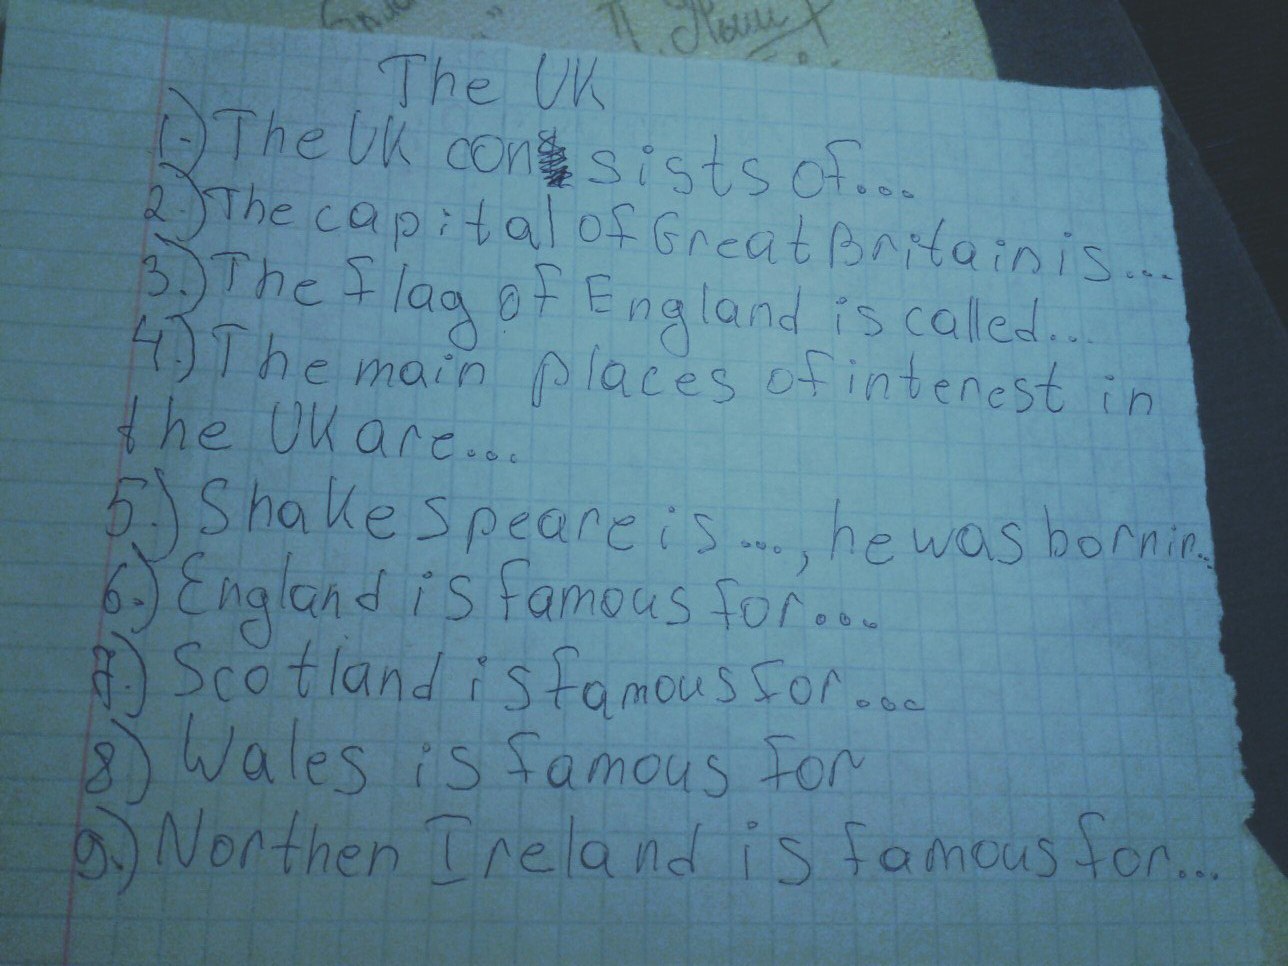 The UK
1.) The UK consists of...
2.) The capital of Great Britain is...
3.) The flag of England is called...
4.) The main places of interest in
the UK are...
5.) Shakespeare is ..., he was born in..
6.) England is famous for...
7.) Scotland is famous for...
8) Wales is famous for
9.) Northen Ireland is famous for...